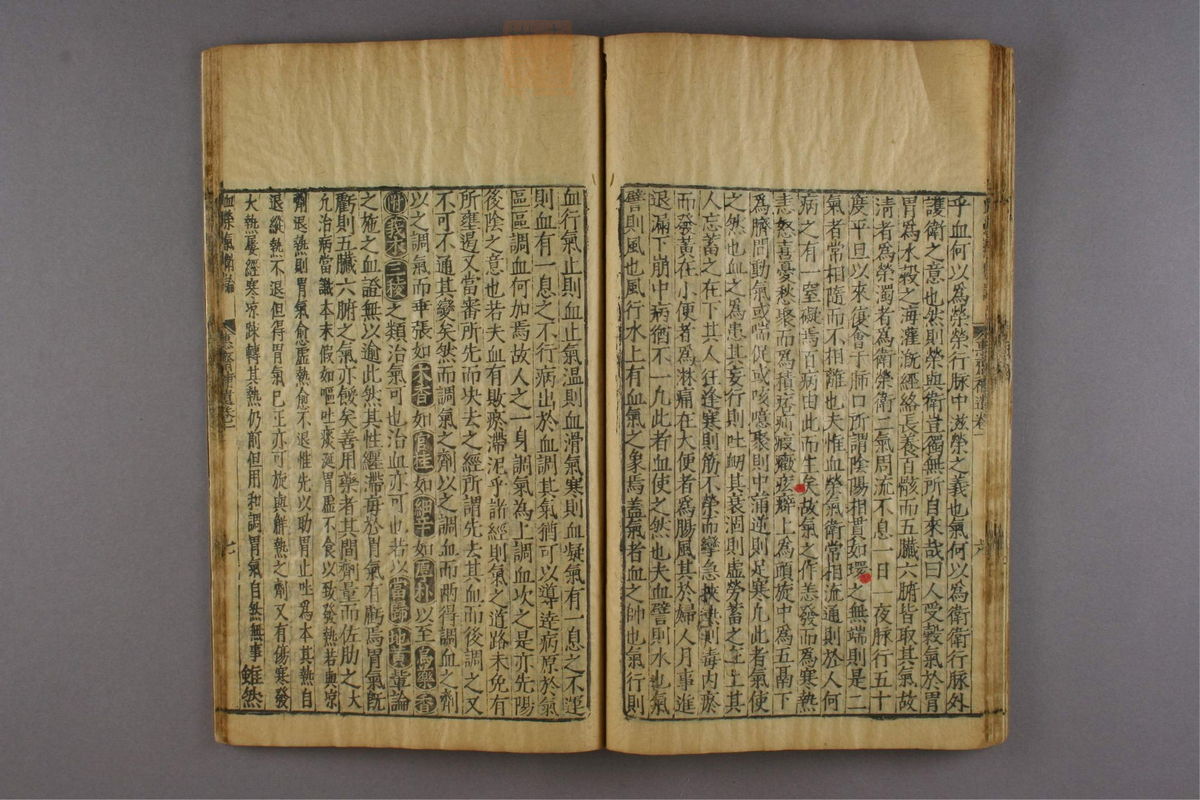 乎血何以為榮榮行脉中滋榮之義也氣何以為衛衛行脉外
護衛之意也然則榮與衛豈獨無所自來哉曰人受穀氣於胃
胃為水穀之海灌溉經絡長養百骸而五臟六腑皆取其氣故
清者為榮濁者為衛榮衛二氣周流不息一日一夜脉行五十
度平旦以來復會于肺口所謂陰陽相貫如環之無端則是二
氣者常相隨而不相離也夫惟血榮氣衛常相流通則於人何
病之有一窒礙焉百病由此而生矣故氣之作恙發而為寒熱
恚怒喜憂愁聚而為積痞疝瘕癥癖上為頭旋中為五鬲下
為臍間動氣或喘促或咳噫聚則中滿逆則足寒凢此者氣使
之然也血之為患其妄行則吐衂其衰涸則虛勞蓄之上其
人忘蓄之在下其人狂逢寒則筋不榮而攣急挾熱則毒内瘀
而發黃在小便者為淋痛在大便者為腸風其於婦人月事進
退漏下崩中病猶不一凢此者血使之然也夫血譬則水也氣
譬則風也風行水上有血氣之象焉盖氣者血之帥也氣行則
血行氣止則血止氣温則血滑氣寒則血凝氣有一息之不運
則血有一息之不行病出於血調其氣猶可以導達病原於氣
區區調血何加焉故人之一身調氣為上調血次之是亦先陽
後陰之意也若夫血有敗瘀滯泥乎諸經則氣之道路未免有
所壅遏又當審所先而决去之經所謂先去其血而後調之又
不可不通其變矣然而調氣之劑以之調血而兩得調血之劑
以之調氣而乖張如木香如官桂如細辛如厚朴以至烏藥香
附莪朮三稜之類治氣可也治血亦可也若以當歸地黃軰論
之施之血證無以逾此然其性纏滯毎於胃氣有虧焉胃氣旣
虧則五臟六腑之氣亦餒矣善用藥者其間劑量而佐助之大
凢治病當識本末假如嘔吐痰涎胃虛不食以致發熱若更凉
劑退熱則胃氣愈虛熱愈不退惟先以助胃止吐為本其熱自
退縱熱不退但得胃氣巳正亦可旋與解熱之劑又有傷寒發
大熱屢經寒凉踈轉其熱仍前但用和調胃氣自然無事雖然
七